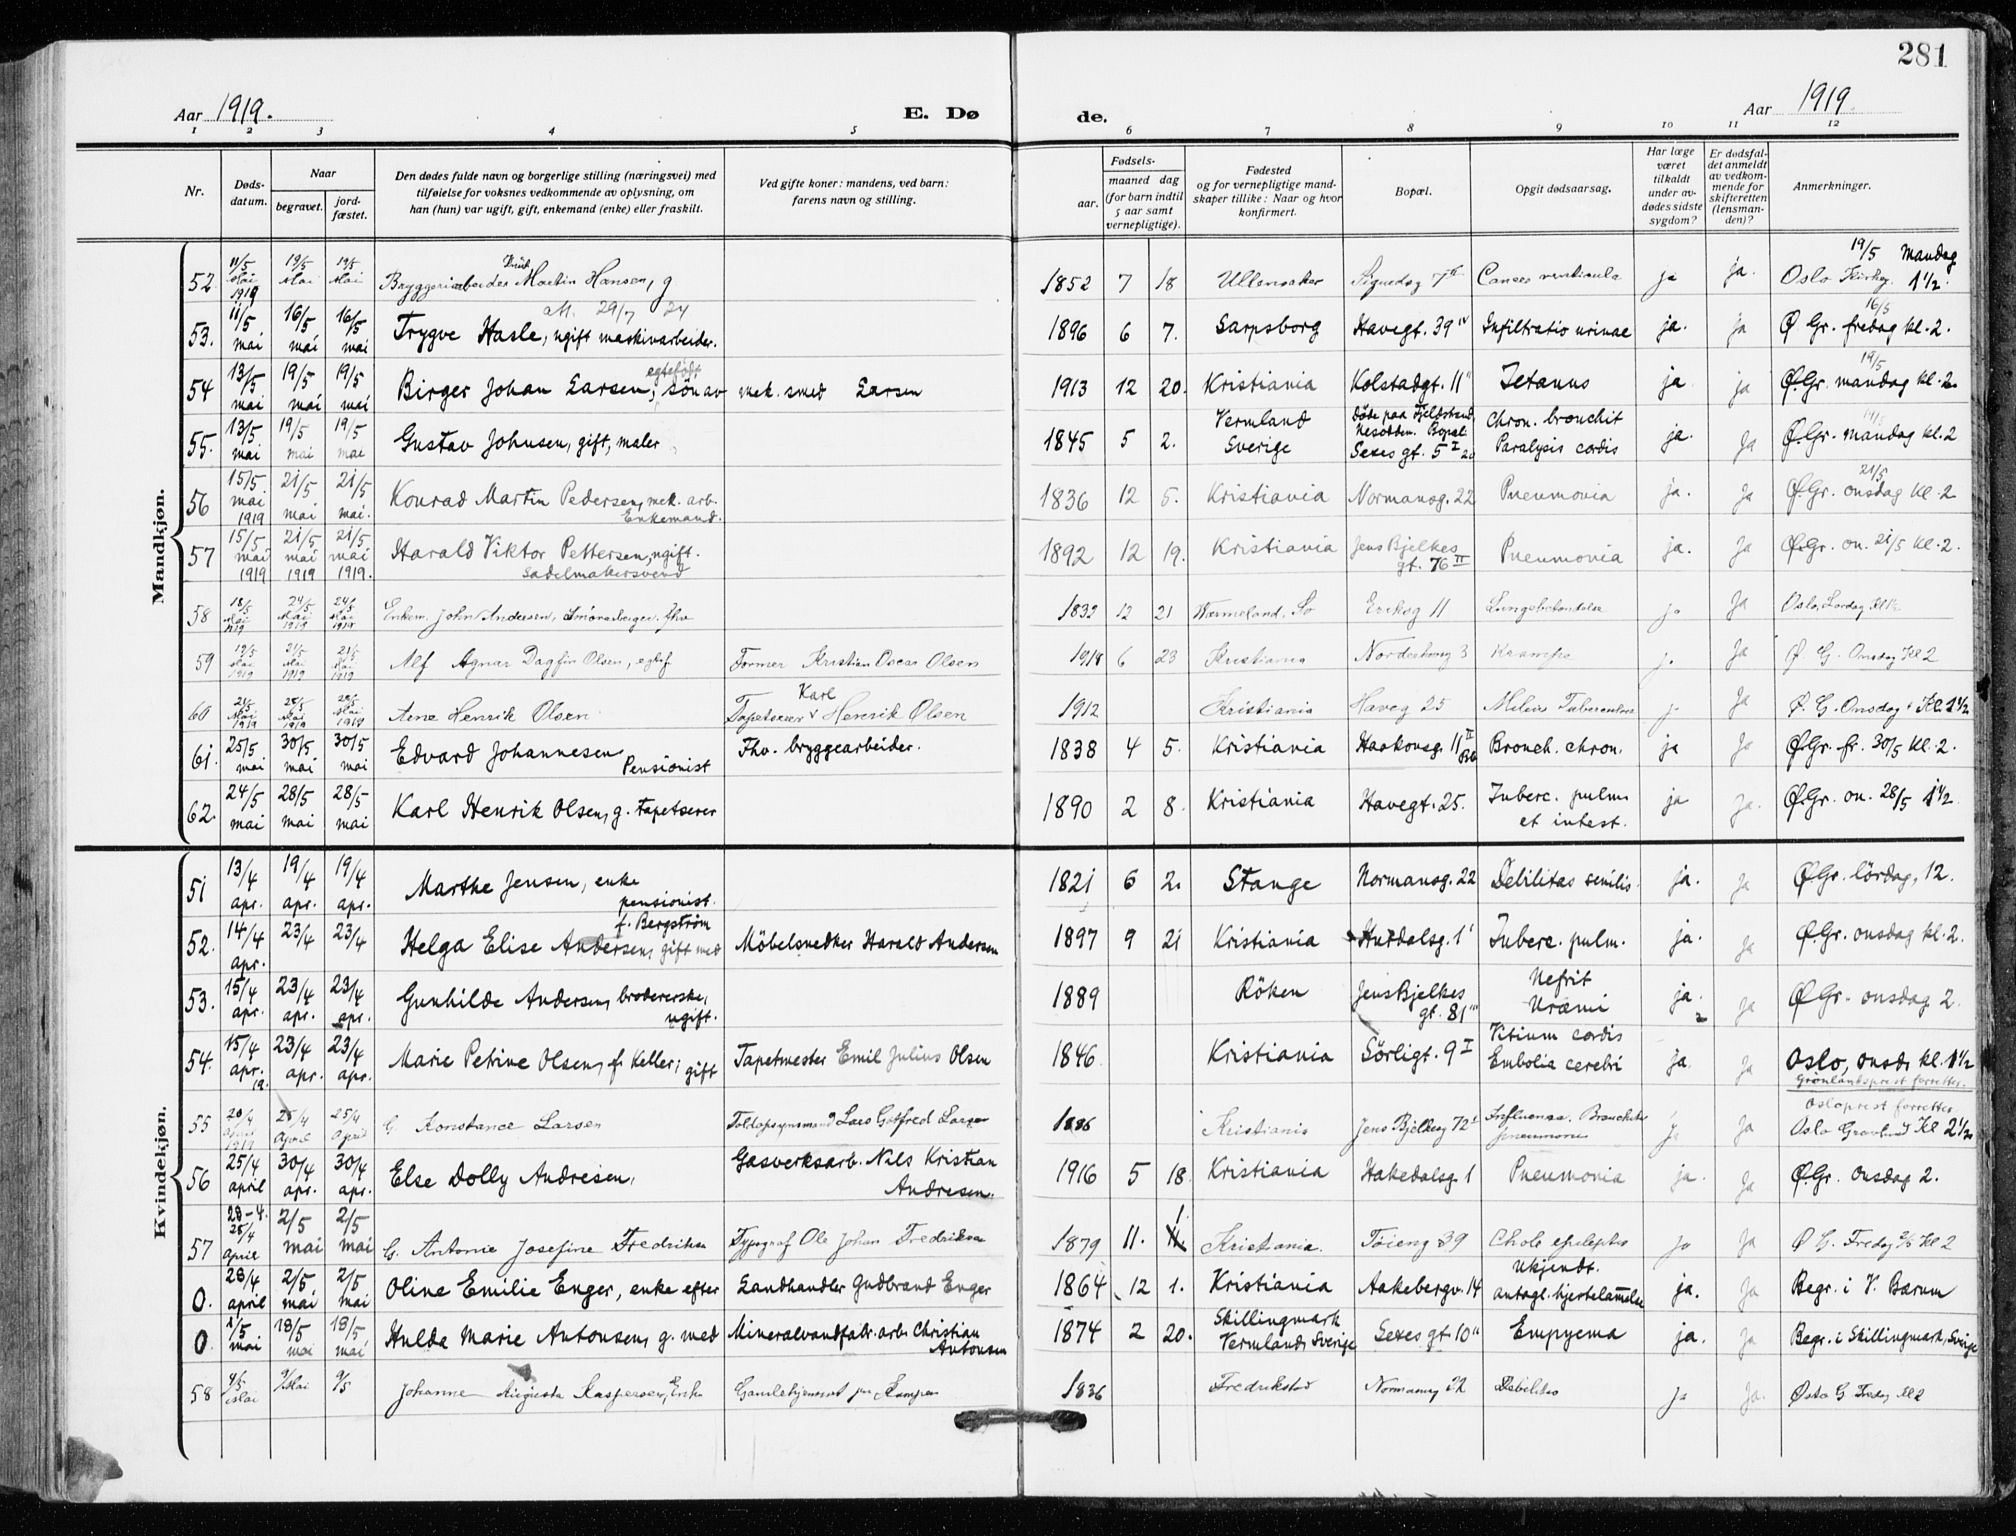 281
Aar 1919.
E. Dø
de.
Aar 1919.
1 2 3 4 5 6 7 8 9 10 11 12
Nr.
Døds-
datum.
Naar
begravet.
jord-
fæstet.
Den dødes fulde navn og borgerlige stilling (næringsvei) med
tilføielse for voksnes vedkommende av oplysning, om
han (hun) var ugift, gift, enkemand (enke) eller fraskilt.
Ved gifte koner: mandens, ved barn:
farens navn og stilling.
Fødsels-
aar.
maaned dag
(for barn indtil
5 aar samt
vernepligtige).
Fødested
og for vernepligtige mand-
skaper tillike: Naar og hvor
konfirmert.
Bopæl.
Opgit dødsaarsag.
Har læge
været
tilkaldt
under av-
dødes sidste
sygdom?
Er dødsfal-
det anmeldt
av vedkom-
mende for
skifteretten
(lensman-
den)?
Anmerkninger.
Mandkjøn.
52. 11/5 Mai 1919 19/5 Mai 19/5 Mai Bryggeriarbeider Martin Hansen, g 1852 7 18 Ullensaker ja ja. Oslo 19/5 Mandag 1 1/2.
att. 29/7 24
53. 11/5 mai 16/5 mai 16/5 mai Trygve Hasle, ugift maskinarbeider. 1896 6 7. Sarpsborg Havegt. 39 IV Infiltratio urinae ja. ja Ø Gr. fredag kl. 2. 16/5
54 13/5 mai 19/5 mai 19/5 mai Birger Johan Larsen, egtefödt søn av mek. smed Larsen 1913 12 20. Kristiania Kolstadgt. 11 II Tetanus ja. ja Ø.Gr. mandag kl. 2. 19/5
55. 13/5 mai 19/5 mai 19/5 mai Gustav Johnsen, gift, maler 1845 5 2. Vermland Sverige döde paa Fjeldstrand, Nesodden. Bopæl Sexes gt. 5 I Chron. bronchit Paralysis cordis ja. Ja Ø.Gr. mandag kl. 2
56 15/5 mai 1919 21/5 mai 21/5 mai. Konrad Martin Pedersen, mek. arb. Enkemand. 1836 12 5. Kristiania Normansg. 22 Pneumonia ja. Ja Ø.Gr. onsdag kl. 2 21/5
57 15/5 mai 1919 21/5 mai 1919 21/5 mai 1919. Harald Viktor Pettersen, ugift. Sadelmakersvend 1892 12 19. Kristiania Jens Bjelkes gt. 76 II Pneumonia ja. Ja Ø.Gr. on. 21/5 kl. 2.
58 18/5 Mai 1919 24/5 Mai 1919 24/5 Mai 1919 Enkem. John Andersen, fhv 1832 12 21 Wærmeland. Eriksg 11 Lungebetændelse ja Ja Oslo, Lørdag Kl 1 1/2
59 19/5 Mai 1919 21/5 Mai 1919 21/5 Mai 1919 Alf Agnar Dagfin Olsen, egtef Former Kristian Oscar Olsen 1918 6 23 Kristiania Nordahlsvg 3 Krampe ja Ja Ø. G. Onsdag Kl 2
60 Mai 1919 28/5 Mai 1919 28/5 Mai 1919 Arne Henrik Olsen Tapetserer Karl Henrik Olsen 1912 Kristiania Haveg 25 Miliær Tuberculose ja Ja Ø. G. Onsdag Kl. 1 1/2
61. 25/5 mai 30/5 mai 30/5 mai Edvard Johannesen Pensionist Fhv. bryggearbeider. 1838 4 5. Kristiania Haakonsg. 11 II Bronch. chron. ja Ja Ø.Gr. fr. 30/5 kl. 2.
62. 24/5 mai 28/5 mai 28/5 mai Karl Henrik Olsen, g. tapetserer 1890 2 8. Kristiania Havegt. 25. Tuberc. pulm et intest. ja Ja. Ø.Gr. on. 28/5 1 1/2
Kvindekjøn.
51 13/4 apr. 19/4 apr. 19/4 apr. Marthe Jensen, enke pensionist. 1821 6 2. Stange Normansg. 22 Debilitas senilis. ja. Ja Ø.Gr. lördag, 12.
52. 14/4 apr. 23/4 23/4 Helga Elise Andersen, f. Bergström gift med Möbelsnedker Harald Andersen 1897 9 21 Kristiania Hurdalsg. 1 I Tuberc. pulm. ja. Ja Ø.Gr. onsdag kl. 2.
53. 15/4 apr. 23/4 apr. 23/4 apr. Gunhilde Andersen, brodererske, ugift. 1889 Röken Jens Bjelkes gt. 81 III Nefrit Urämi ja. Ja Ø Gr. onsdag 2.
54. 15/4 apr. 19. 23/4 apr. 23/4 apr. Marie Petrine Olsen, f. Keller; gift Tapetmester Emil Julius Olsen 1846 Kristiania Sörligt. 9 I Vitium cordis Embolia cerebri ja. Ja Oslo, onsd. kl. 1 1/2 Grønlandsprest forretter.
55 20/4 April 1919 25/4 April 25/4 April G. Konstance Larsen Toldopsynsmand Lars Gotfred Larsen 1886 Kristiania Jens Bjelkesg 72 I Influensa. ja Ja Osloprest forretter Oslo Gravlund Kl 2 1/2
56 25/4 april 30/4 apr. 30/4 apr. Else Dolly Andresen, Gasverksarb. Nils Kristian Andresen. 1916 5 18. Kristiania Hakedalsg. 1 Pneumonia ja. Ja Ø.Gr. onsdag 2.
57 28-4. April 2/5 mai 2/5 mai G. Antonie Josefine Fredriksen Typograf Ole Johan Fredriksen 1879 11. 1 Kristiania. Töieng 39 ja Ja Ø G. Fredag 2/5 Kl 2
0. 28/4 april 2/5 mai 2/5 mai Oline Emilie Enger, enke efter Landhandler Gudbrand Enger 1864 12 1. Kristiania Aakebergv. 14 Ukjendt. antagl. hjertelammelse ja. Ja Begr. i V. Bærum
0 1/5 mai 18/5 mai 18/5 mai Hulda Marie Antonsen, g. med Mineralvandfabr. arb. Christian Antonsen 1874 2 20. Skillingmark Vermland, Sverige Sexes gt. 10 II Empyema ja. Ja Begr. i Skillingmark, Sverige
58 4/5 Mai 9/Mai 9/5 Johanne Augusta Kaspersen, Enke Gamlehjemmet paa Kampen 1836 Fredrikstad Normansg 22 Debilitas ja Ja. Østo G Fredag Kl 2